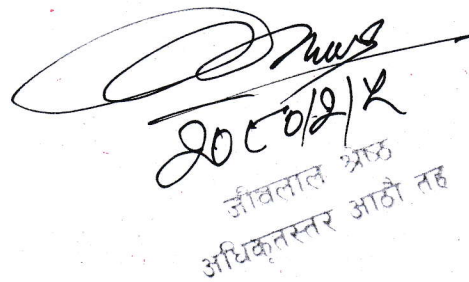 २०८०/२/५
जीवलाल श्रेष्ठ
अधिकृतस्तर आठौ तह